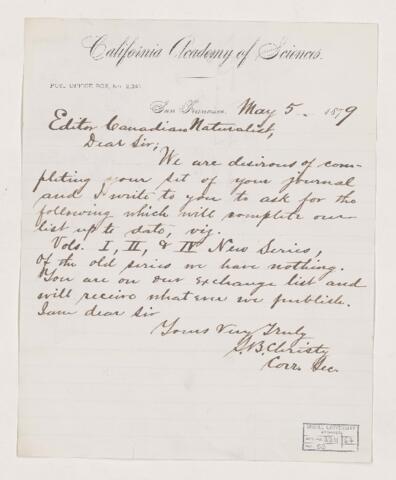 California Academy of Sciences.
POST OFFICE BOX, No. 2,247.
San Francisco, May 5 - 1879
Editor Canadian Naturalist,
Dear Sir;
We are desirous of com-
pleting our set of your journal
and I write to you to ask for the
following which will complete our
list up to date, viz.
Vols. I, II, & IV New Series,
Of the old series we have nothing.
You are on our exchange list and
will receive whatever we publish.
I am dear Sir
Yours Very Truly
S.B. Christy
Corr. Sec.
McGILL UNIVERSITY
ARCHIVES